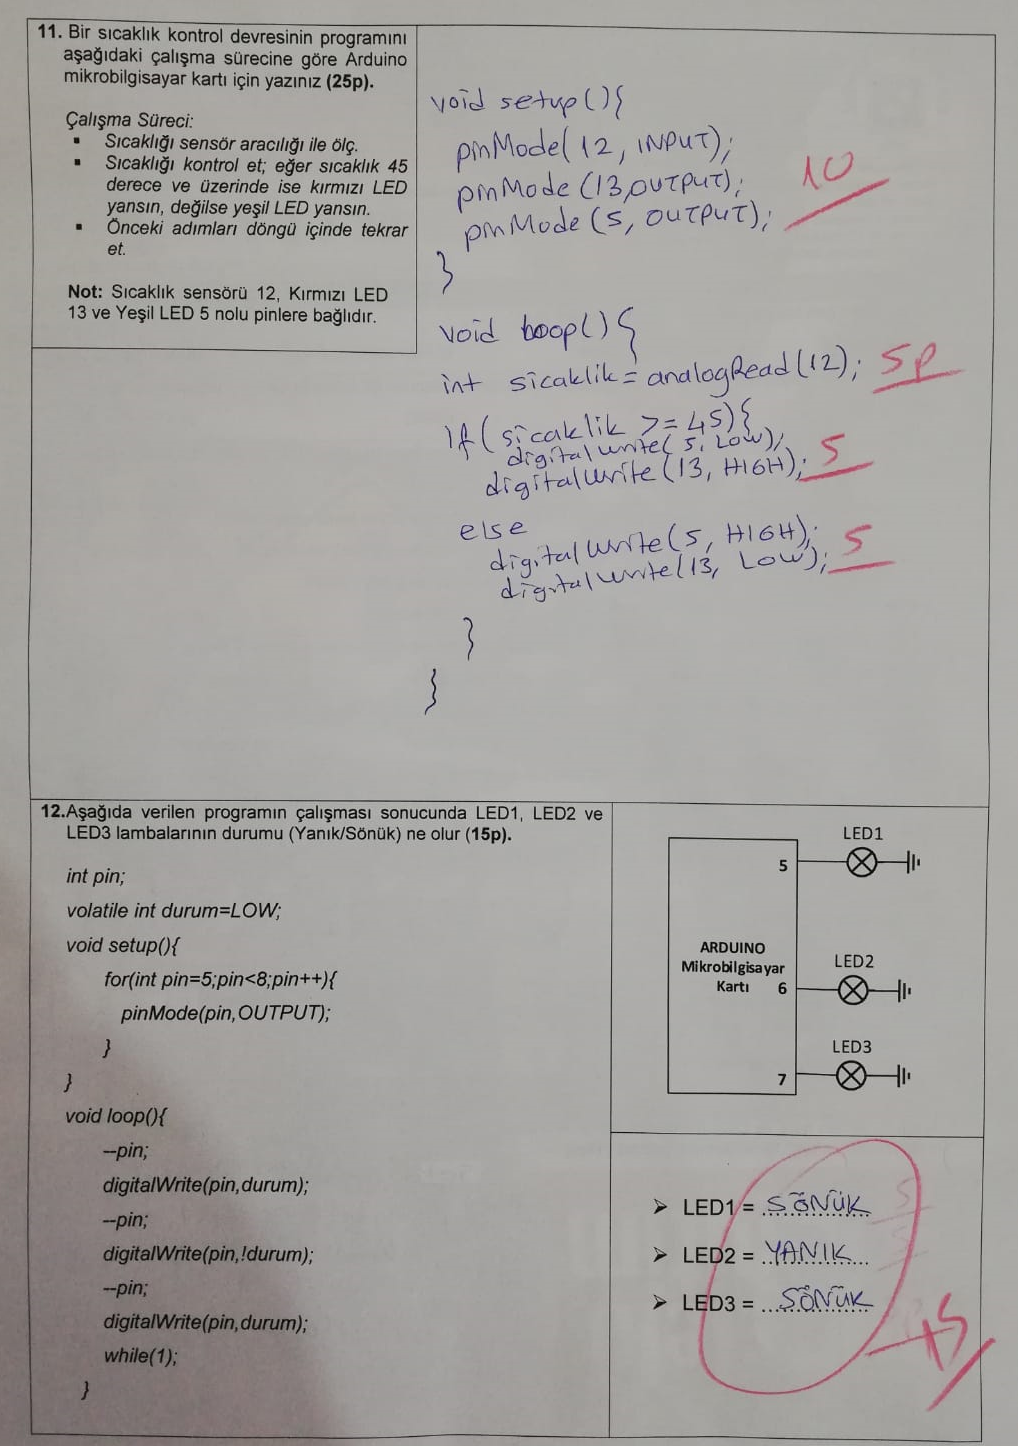 11. Bir sıcaklık kontrol devresinin programını
aşağıdaki çalışma sürecine göre Arduino
mikrobilgisayar kartı için yazınız (25p).
Çalışma Süreci:
▪ Sıcaklığı sensör aracılığı ile ölç.
▪ Sıcaklığı kontrol et; eğer sıcaklık 45
derece ve üzerinde ise kırmızı LED
yansın, değilse yeşil LED yansın.
▪ Önceki adımları döngü içinde tekrar
et.
Not: Sıcaklık sensörü 12, Kırmızı LED
13 ve Yeşil LED 5 nolu pinlere bağlıdır.
void setup(){
pinMode(12, INPUT);
pinMode(13,OUTPUT);
pinMode(5, OUTPUT);
10
}
void loop(){
int sıcaklik = analogRead(12); 5p
if(sıcaklik >= 45){
digitalwrite(5, LOW);
digitalWrite(13, HIGH); 5
else
digitalWrite(5, HIGH);
digitalwrite(13, LOW); 5
}
}
12.Aşağıda verilen programın çalışması sonucunda LED1, LED2 ve
LED3 lambalarının durumu (Yanık/Sönük) ne olur (15p).
int pin;
volatile int durum=LOW;
void setup(){
for(int pin=5;pin<8;pin++){
pinMode(pin,OUTPUT);
}
}
void loop(){
--pin;
digitalWrite(pin,durum);
--pin;
digitalWrite(pin,!durum);
--pin;
digitalWrite(pin,durum);
while(1);
}
LED1
5
ARDUINO
Mikrobilgisayar
Kartı 6
LED2
LED3
7
➤ LED1 = SÖNÜK
➤ LED2 = YANIK
➤ LED3 = SÖNÜK